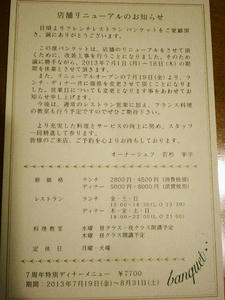 店舗リニューアルのお知らせ
日頃よりフレンチレストラン バンケットをご愛顧頂
き、誠にありがとうございます。
この度バンケットは、店舗のリニューアルをさせて頂
くために、改装工事を行うこととなりました。そのため
誠に勝手ながら、2013年7月1日(月)~18日(木)の期
間を休業とさせて頂きます。
また、リニューアルオープンの7月19日(金)より、ラ
ンチ・ディナー共に価格を変更させて頂くこととなりま
した。営業日についても変更となります事をあわせてお
知らせ申し上げます。
今後は、通常のレストラン営業に加え、フランス料理
の教室も行う予定ですのでぜひご期待下さい。
より充実した料理とサービスの向上に努め、スタッフ
一同精進して参ります。
皆様のご来店、ご予約を心よりお待ちしております。
オーナーシェフ 若杉 幸平
新価格 ランチ 2800円・4500円(消費税別)
ディナー 5000円・8000円(消費税別)
レストラン ランチ 金・土・日
ディナー 木・金・土・日
料理教室 水曜 昼クラス・夜クラス開講予定
木曜 昼クラス開講予定
定休日 月曜・火曜
7周年特別ディナーメニュー ¥7700
期間:2013年7月19日(金)~8月31日(土)
banquet